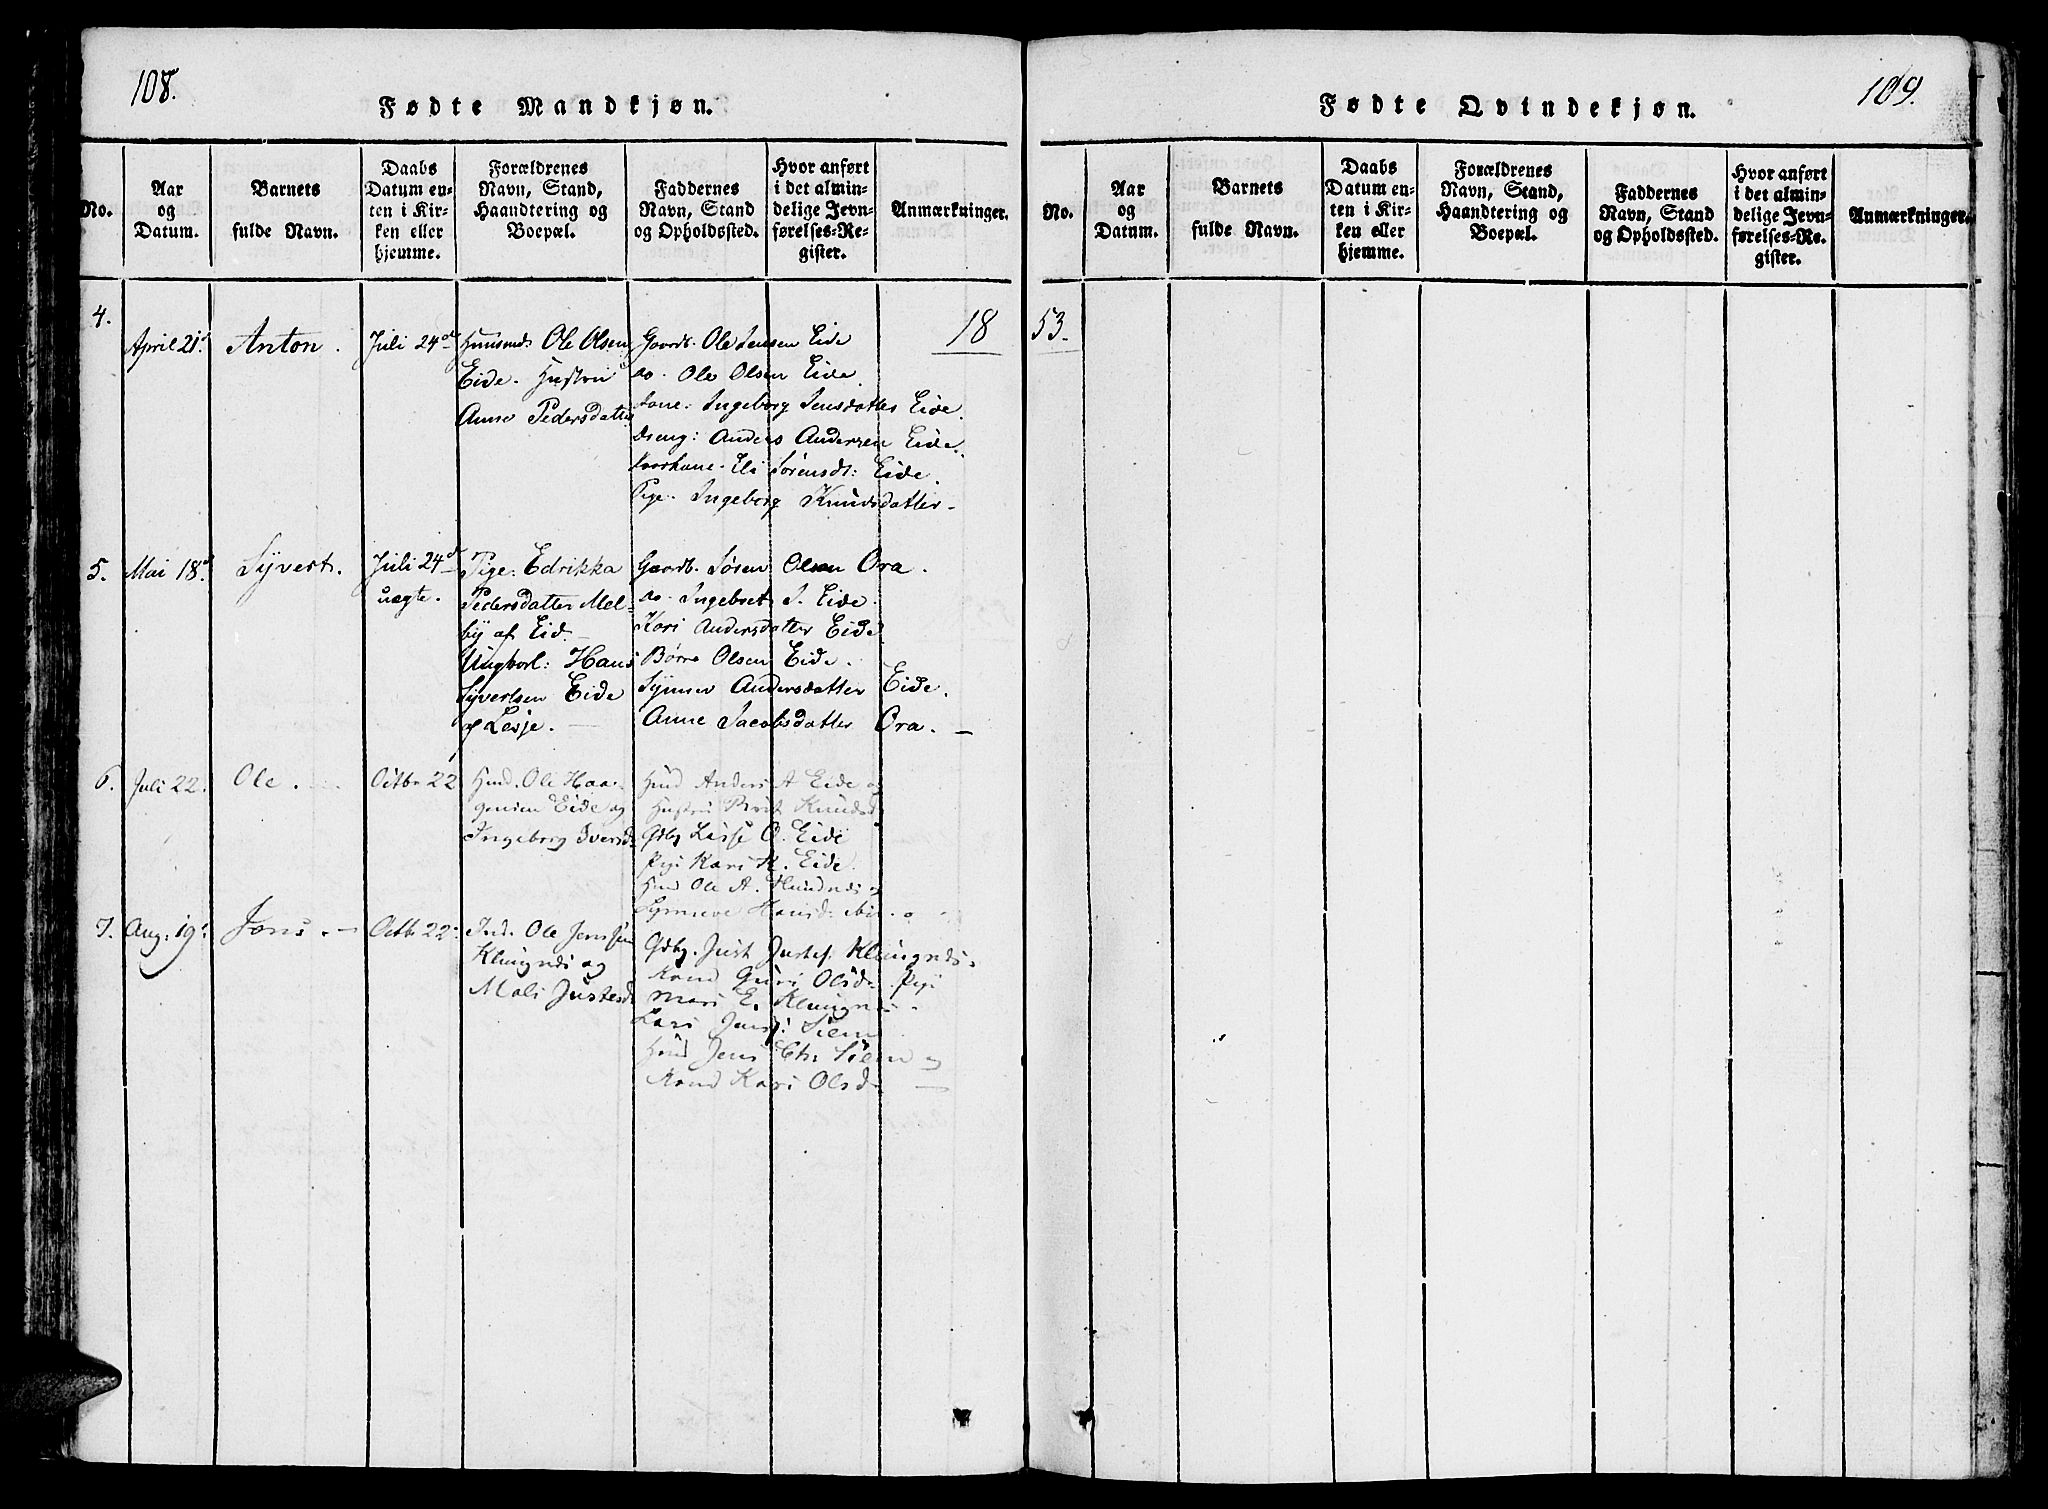 108.
Fødte Mandkjøn.
No.
Aar
og
Datum.
Barnets
fulde Navn.
Daabs
Datum en-
ten i Kir-
ken eller
hjemme.
Forældrenes
Navn, Stand,
Haandtering og
Boepæl.
Faddernes
Navn, Stand
og Opholdssted.
Hvor anført
i det almin-
delige Jevn-
førelses-Re-
gister.
Anmærkninger.
18
4.
April 21.
Anton.
Juli 24de
Huusmd: Ole Olsen
Eide. Hustru
Anne Pedersdatter
Gaardb. Ole Jensen Eide
do. Ole Olsen Eide
Kone: Ingeborg Jensdatter Eide.
Dreng: Anders Andersen Eide.
Eli Sørensdt: Eide.
Pige. Ingeborg Knudsdatter –
5.
Mai 18d.
Syvert.
Juli 24d
uægte.
Pige: Edrikka
Pedersdatter Mel-
by af Eid. –
Ungkarl: Hans
Syvertsen Eide
af Lesje. –
Gaardb. Søren Olsen Ora.
do. Ingebret S. Eide.
Kari Andersdatter Eide
Børre Olsen Eide.
Synnev Andersdatter Eide.
Anne Jacobsdatter Ora. –
6.
Juli 22.
Ole.
Octbr 22
Hmd. Ole Haa-
gensen Eide og
Ingeborg Iversd:
Hmd Anders A Eide og
Hustru Brit Knudsd
Gdbg Lasse O. Eide
Pige Kari K. Eide
Hmd Ole A.
Synneve Hansd: ibid.
7.
Aug: 19.
Jens. –
Octbr 22.
Ind. Ole Jenssen
Klungnes og
Mali Justesd:
Gdbg. Just Justes: Klungnes.
Kone Guri Olsd. Pige
Mari E. Klungnes
Lars Jens: Siem
Hmd Jens Chr. Siem og
Kone Kari Olsd. –
109.
Fødte Qvindekjøn.
No.
Aar
og
Datum.
Barnets
fulde Navn.
Daabs
Datum en-
ten i Kir-
ken eller
hjemme.
Forældrenes
Navn, Stand,
Haandtering og
Boepæl.
Faddernes
Navn, Stand
og Opholdssted.
Hvor anført
i det almin-
delige Jevn-
førelses-Re-
gister.
Anmærkninger.
53.